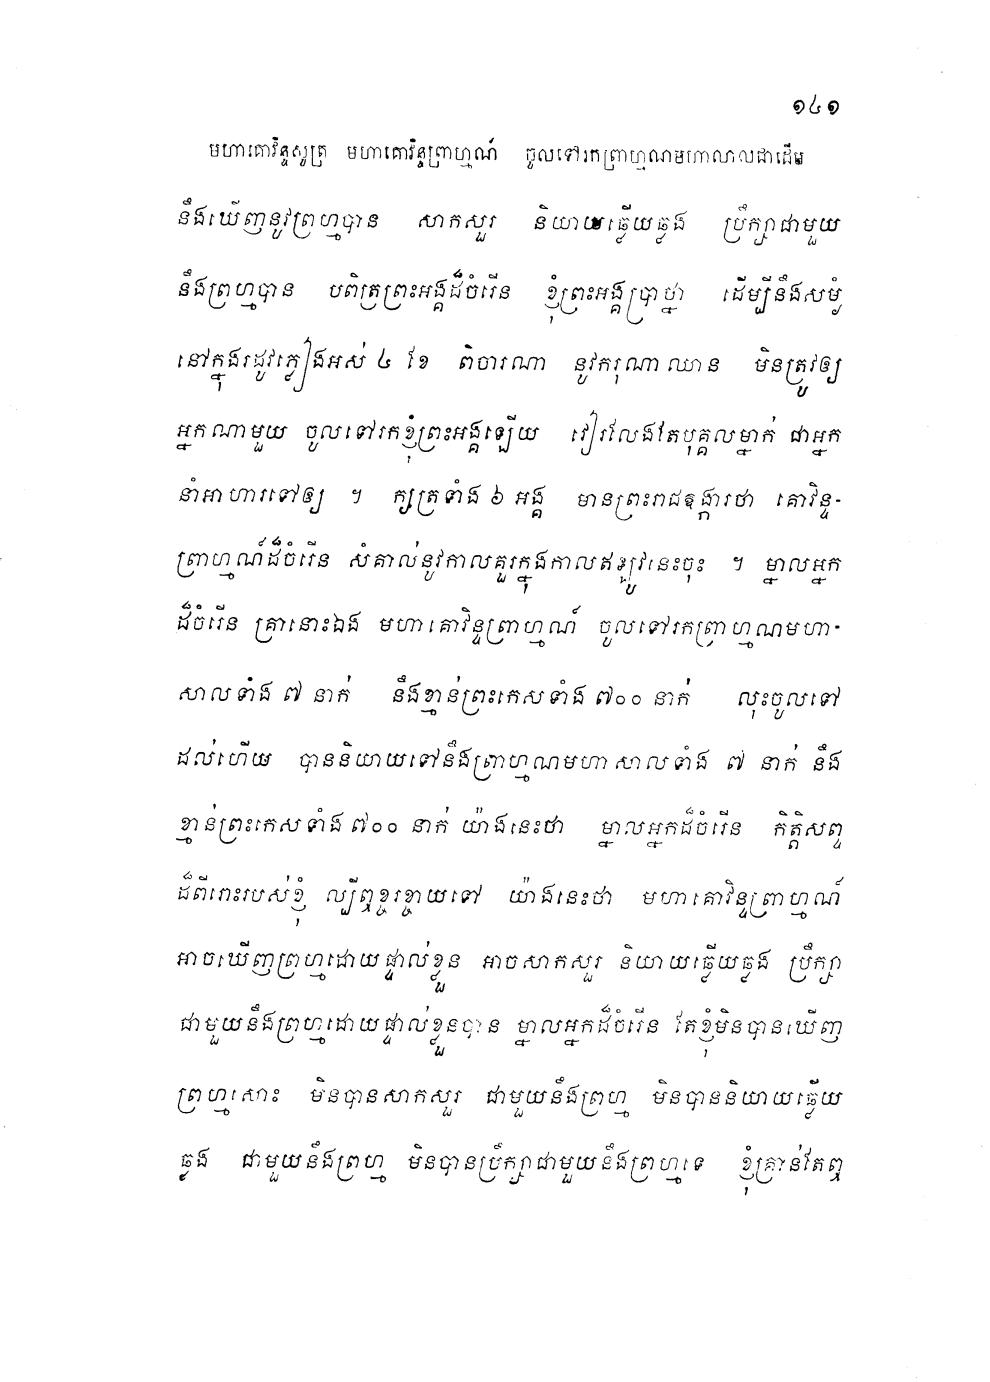 ១៤១
មហាគោវិន្ទសូត្រ មហាគោវិន្ទព្រាហ្មណ៍ ចូលទៅរកព្រាហ្មណមហាសាលជាដើម
នឹងឃើញនូវព្រហ្មបាន សាកសួរ និយាយឆ្លើយឆ្លង ប្រឹក្សាជាមួយ
នឹងព្រហ្មបាន បពិត្រព្រះអង្គដ៏ចំរើន ខ្ញុំព្រះអង្គប្រាថ្នា ដើម្បីនឹងសម្ងំ
នៅក្នុងរដូវភ្លៀងអស់ ៤ ខែ ពិចារណា នូវករុណាឈាន មិនត្រូវឲ្យ
អ្នកណាមួយ ចូលទៅរកខ្ញុំព្រះអង្គឡើយ វៀរលែងតែបុគ្គលម្នាក់ ជាអ្នក
នាំអាហារទៅឲ្យ ។ ក្សត្រទាំង ៦ អង្គ មានព្រះរាជឱង្ការថា គោវិន្ទ-
ព្រាហ្មណ៍ដ៏ចំរើន សំគាល់នូវកាលគួរក្នុងកាលឥឡូវនេះចុះ ។ ម្នាលអ្នក
ដ៏ចំរើន គ្រានោះឯង មហាគោវិន្ទព្រាហ្មណ៍ ចូលទៅរកព្រាហ្មណមហា-
សាលទាំង ៧ នាក់ នឹងខ្មាន់ព្រះកេសទាំង ៧០០ នាក់ លុះចូលទៅ
ដល់ហើយ បាននិយាយទៅនឹងព្រាហ្មណមហាសាលទាំង ៧ នាក់ នឹង
ខ្មាន់ព្រះកេសទាំង ៧០០ នាក់ យ៉ាងនេះថា ម្នាលអ្នកដ៏ចំរើន កិត្តិសព្ទ
ដ៏ពីរោះរបស់ខ្ញុំ ល្បីឮខ្ចរខ្ចាយទៅ យ៉ាងនេះថា មហាគោវិន្ទព្រាហ្មណ៍
អាចឃើញព្រហ្មដោយផ្ទាល់ខ្លួន អាចសាកសួរ និយាយឆ្លើយឆ្លង ប្រឹក្សា
ជាមួយនឹងព្រហ្មដោយផ្ទាល់ខ្លួនបាន ម្នាលអ្នកដ៏ចំរើន តែខ្ញុំមិនបានឃើញ
ព្រហ្មសោះ មិនបានសាកសួរ ជាមួយនឹងព្រហ្ម មិនបាននិយាយឆ្លើយ
ឆ្លង ជាមួយនឹងព្រហ្ម មិនបានប្រឹក្សាជាមួយនឹងព្រហ្មទេ ខ្ញុំគ្រាន់តែឮ